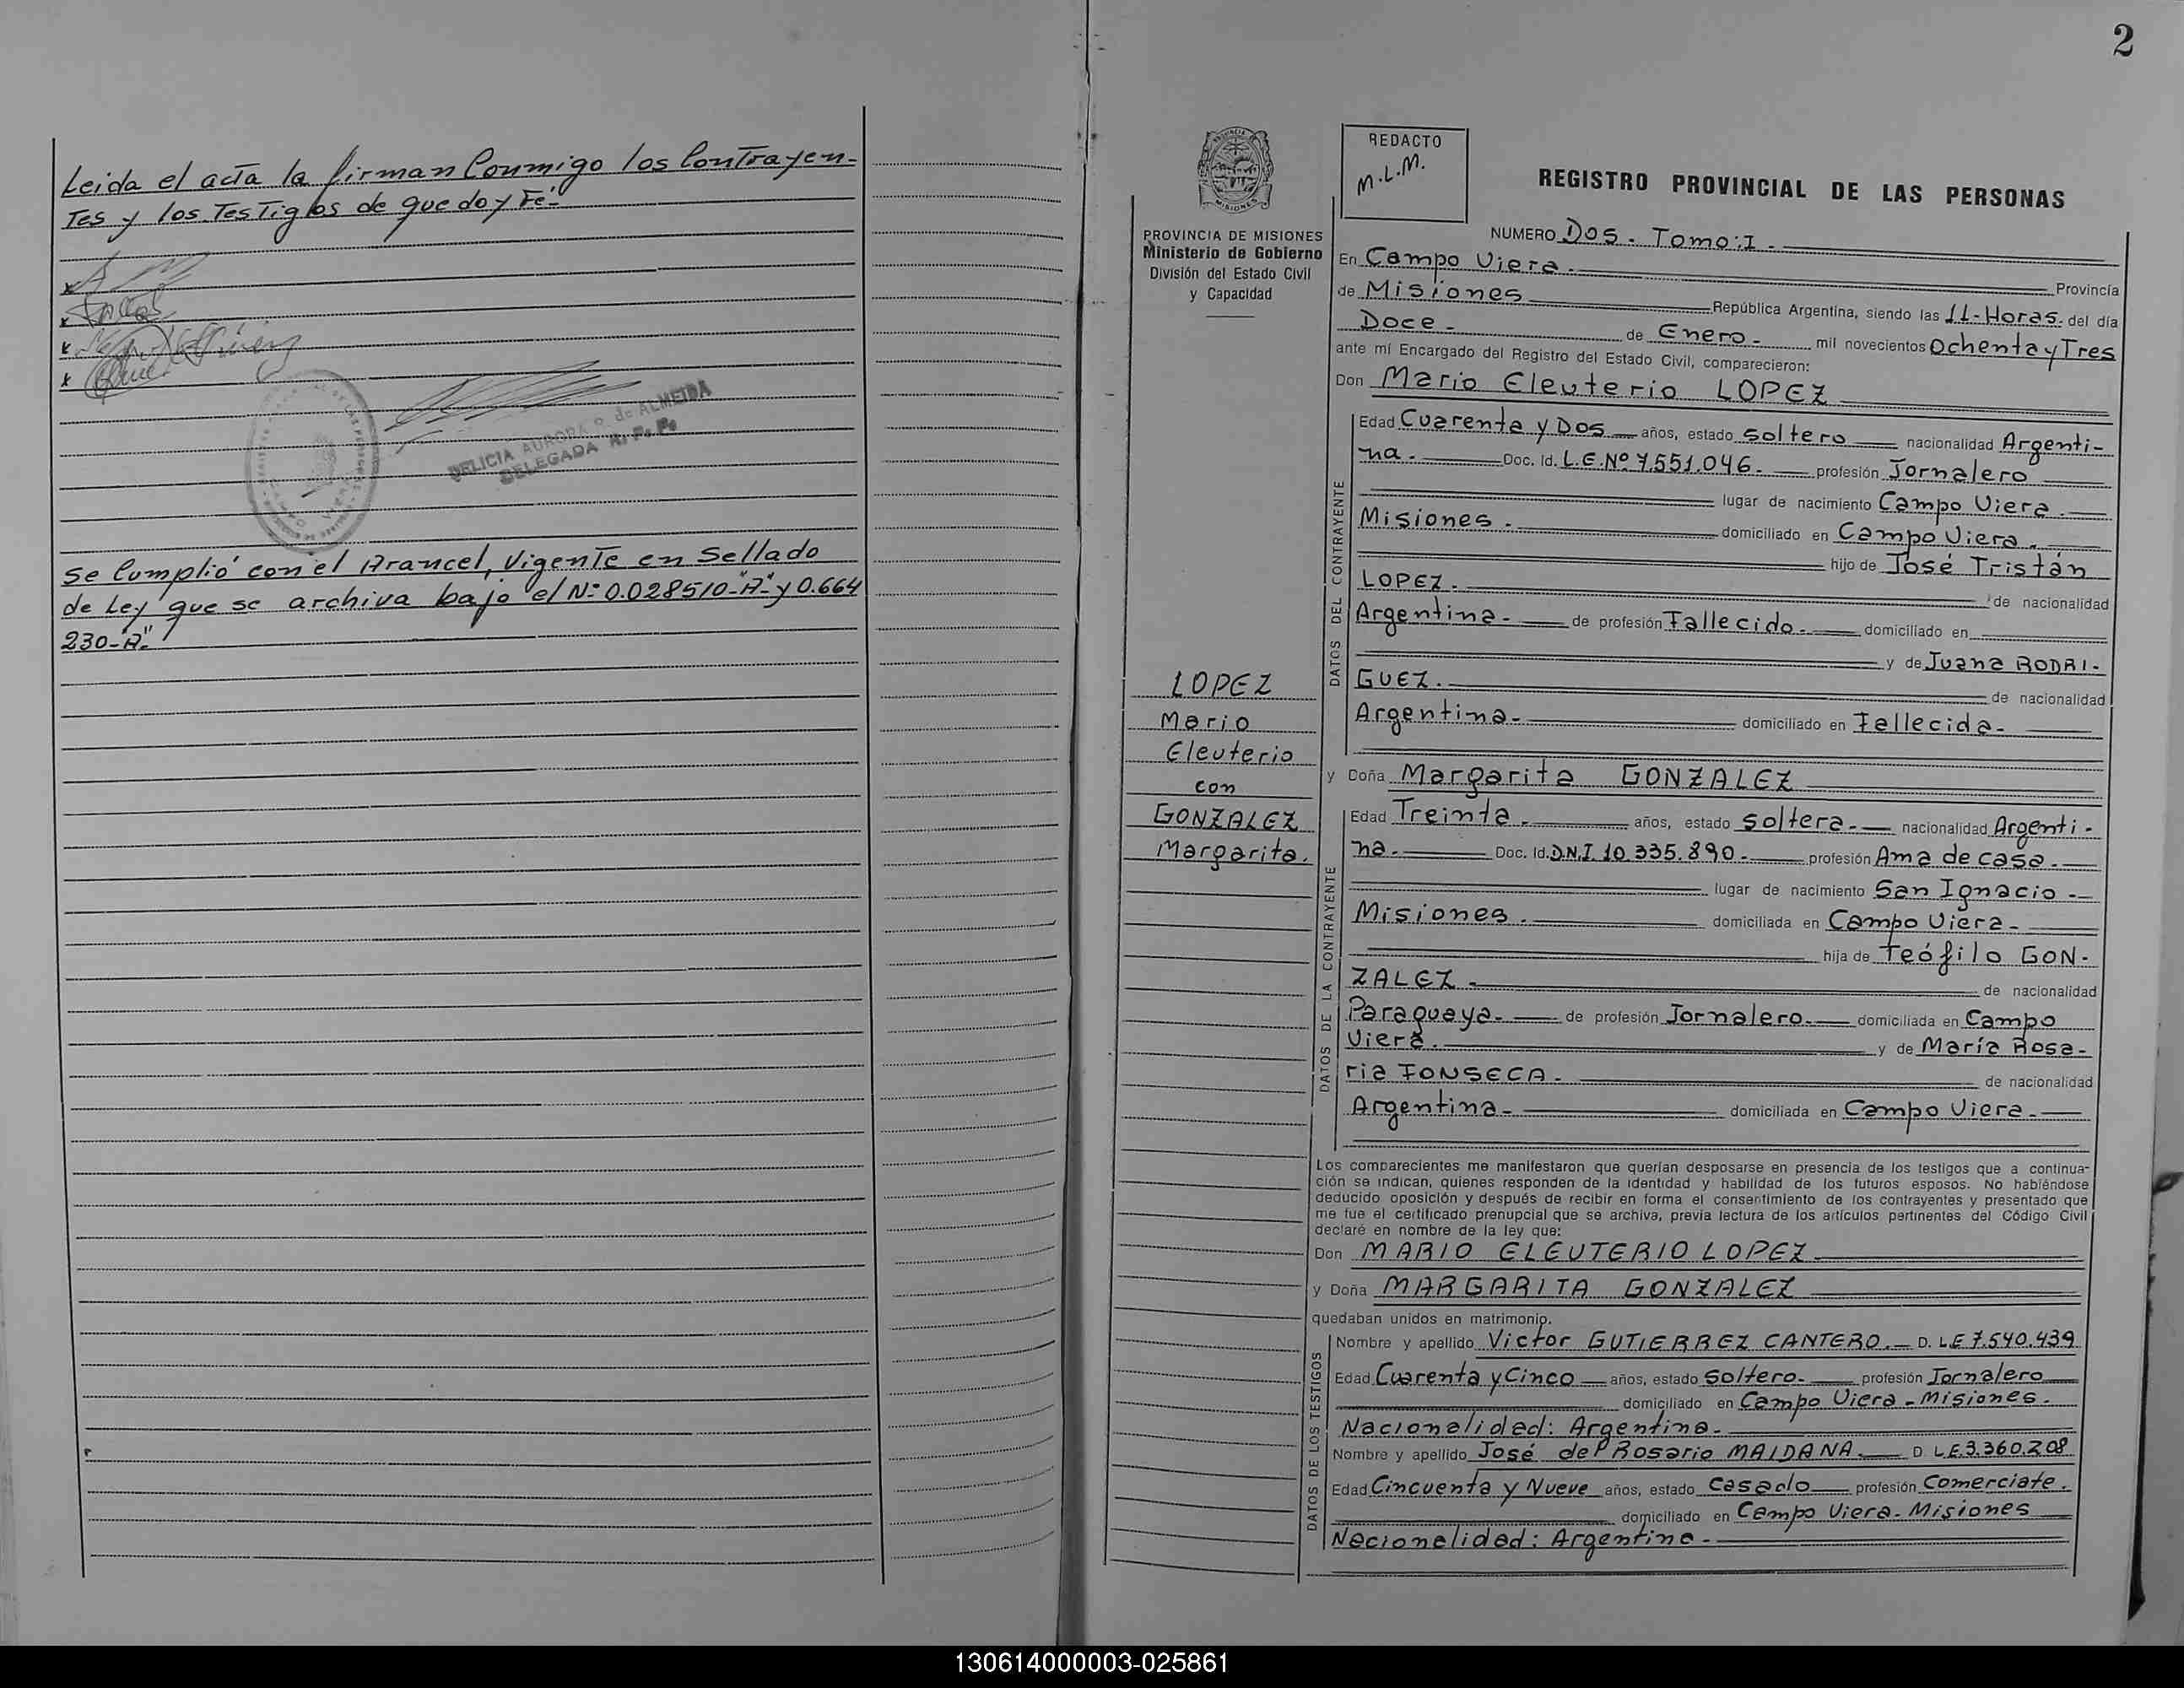 Leida el acta la firman Conmigo los Contrayen-
Tes y los Testigos de que doy Fé.-
DELICIA AURORA R. de ALMEIDA
DELEGADA R. P. P.
Se Cumplió con el Arancel, Vigente en Sellado
de Ley que se archiva bajo el Nº 0.028510-"A"- y 0.664
230-"A"-
2
PROVINCIA DE MISIONES
Ministerio de Gobierno
División del Estado Civil
y Capacidad
LOPEZ
Mario
Eleuterio
con
GONZALEZ
Margarita.
REDACTO
M.L.M.
REGISTRO PROVINCIAL DE LAS PERSONAS
NUMERO Dos.- Tomo: I.-
En Campo Viera.- Provincia
de Misiones República Argentina, siendo las 11-Horas. del día
Doce.- de Enero.- mil novecientos Ochenta y Tres
ante mí Encargado del Registro del Estado Civil, comparecieron:
Don Mario Eleuterio LOPEZ
DATOS DEL CONTRAYENTE
Edad Cuarenta y Dos años, estado soltero nacionalidad Argenti-
na.- Doc. Id. L.E.Nº 7.551.046.- profesión Jornalero
lugar de nacimiento Campo Viera.-
Misiones.- domiciliado en Campo Viera.-
hijo de José Tristán
LOPEZ.- de nacionalidad
Argentina.- de profesión Fallecido.- domiciliado en
y de Juana RODRI-
GUEZ.- de nacionalidad
Argentina.- domiciliado en Fallecida.-
y Doña Margarita GONZALEZ
DATOS DE LA CONTRAYENTE
Edad Treinta.- años, estado soltera.- nacionalidad Argenti-
na.- Doc. Id. D.N.I. 10.335.890.- profesión Ama de casa.-
lugar de nacimiento San Ignacio.-
Misiones.- domiciliada en Campo Viera.-
hija de Teófilo GON-
ZALEZ.- de nacionalidad
Paraguaya.- de profesión Jornalero.- domiciliada en Campo
Viera.- y de María Rosa-
ria FONSECA.- de nacionalidad
Argentina.- domiciliada en Campo Viera.-
Los comparecientes me manifestaron que querían desposarse en presencia de los testigos que a continua-
ción se indican, quienes responden de la identidad y habilidad de los futuros esposos. No habiéndose
deducido oposición y después de recibir en forma el consentimiento de los contrayentes y presentado que
me fue el certificado prenupcial que se archiva, previa lectura de los artículos pertinentes del Código Civil
declaré en nombre de la ley que:
Don MARIO ELEUTERIO LOPEZ
y Doña MARGARITA GONZALEZ
quedaban unidos en matrimonio.
DATOS DE LOS TESTIGOS
Nombre y apellido Victor GUTIERREZ CANTERO.- D. L.E 7.540.439
Edad Cuarenta y Cinco años, estado soltero.- profesión Jornalero
domiciliado en Campo Viera - Misiones.
Nacionalidad: Argentina.-
Nombre y apellido José del Rosario MAIDANA.- D. L.E.3.360.208
Edad Cincuenta y Nueve años, estado Casado profesión Comerciate.
domiciliado en Campo Viera - Misiones
Nacionalidad: Argentina-
130614000003-025861